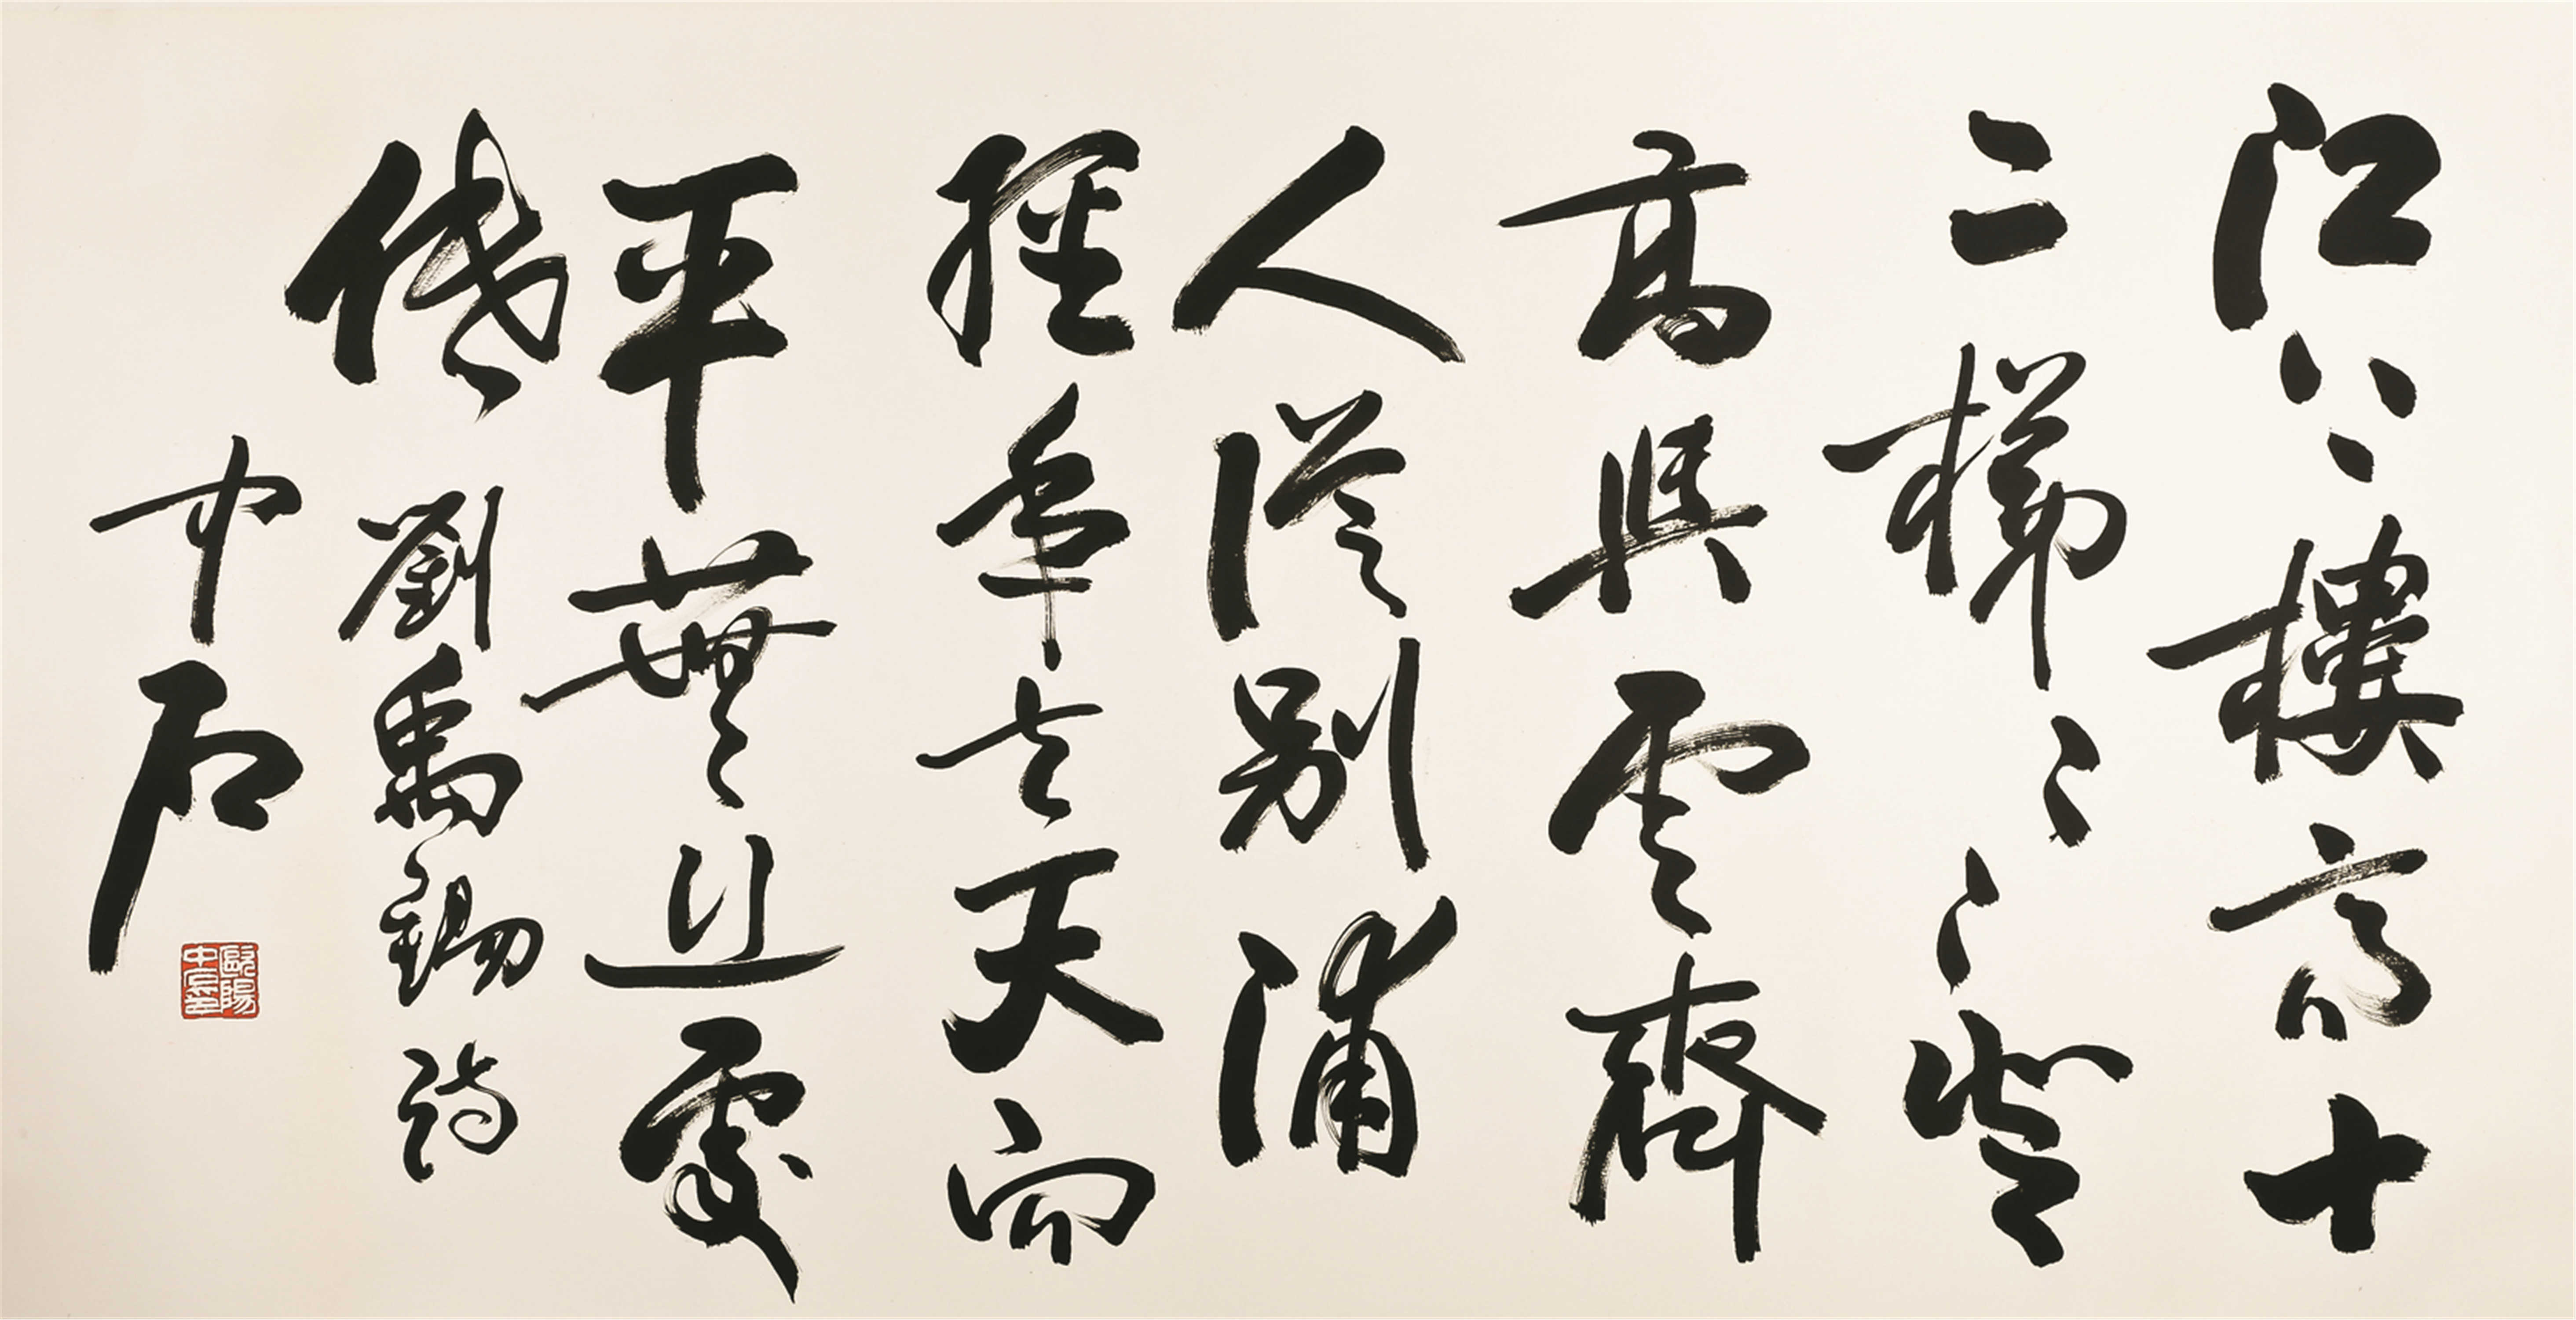 江上樓高十
二梯々々登
高與雲齊
人從別浦
經年去天向
平蕪近處
低 劉禹錫詩
中石
歐陽中石印